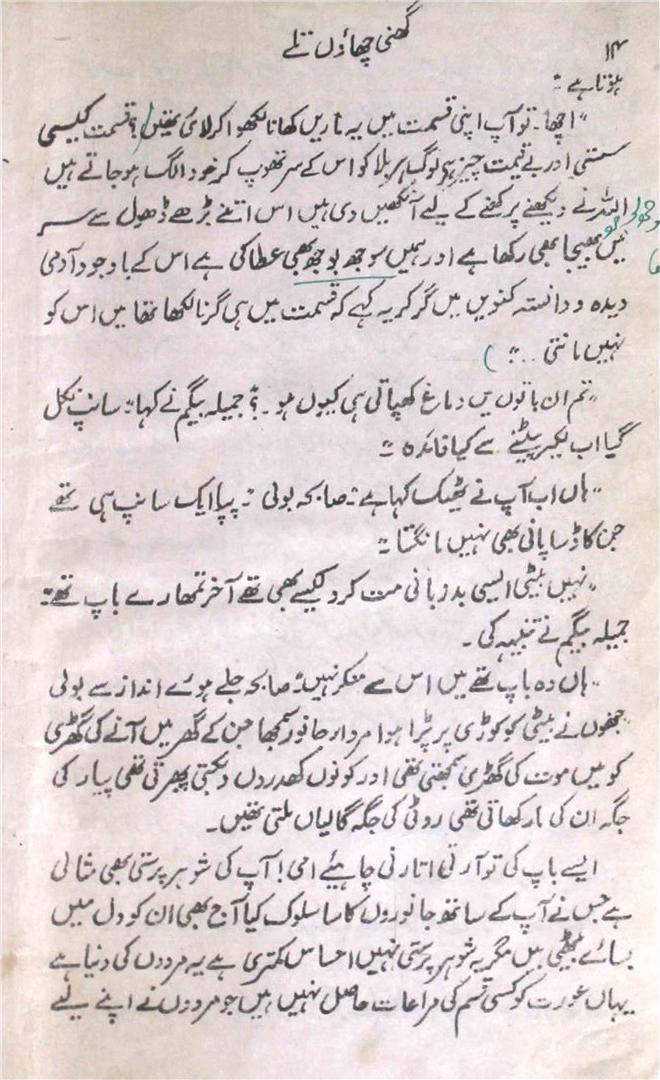 ۱۴
گھنی چھاؤں تلے
ہوتا ہے ؛
"اچھا۔ تو آپ اپنی قسمت میں یہ ماریں کھانا لکھوا کر لائی تھیں؟ قسمت کیسی
سستی اور بے قیمت چیز ہے لوگ ہر بلا کو اس کے سر تھوپ کر خود الگ ہو جاتے ہیں
اللہ نے دیکھنے پرکھنے کے لیے آنکھیں دی ہیں اس اتنے بڑھے ڈھول سے سر
میں بھیجا بھی رکھا ہے اور ہمیں سوجھ بوجھ بھی عطا کی ہے اس کے باوجود آدمی
دیدہ و دانستہ کنویں میں گر کر یہ کہے کہ قسمت میں ہی گرنا لکھا تھا میں اس کو
نہیں مانتی ..."
"تم ان باتوں میں دماغ کھپاتی ہی کیوں ہو۔؟" جمیلہ بیگم نے کہا" سانپ نکل
گیا اب لکیر پیٹنے سے کیا فائدہ ۔"
"ہاں اب آپ نے ٹھیک کہا ہے" صابحہ بولی " پپا ایک سانپ ہی تھے
جن کا ڈسا پانی بھی نہیں مانگتا۔"
"نہیں بیٹی ایسی بدزبانی مت کرو کیسے بھی تھے آخر تمھارے باپ تھے"
جمیلہ بیگم نے تنبیہہ کی۔
"ہاں وہ باپ تھے میں اس سے منکر نہیں" صابحہ جلے ہوئے انداز سے بولی
"جنھوں نے بیٹی کو کوڑی پر پڑا ہوا مردار جانور سمجھا جن کے گھر میں آنے کی گھڑی
کو میں موت کی گھڑی سمجھتی تھی اور کونوں کھدروں دبکتی پھرتی تھی پیار کی
جگہ ان کی مار کھاتی تھی روٹی کی جگہ گالیاں ملتی تھیں۔
ایسے باپ کی تو آرتی اتارنی چاہیئے امی! آپ کی شوہر پرستی بھی مثالی
ہے جس نے آپ کے ساتھ جانوروں کا سا سلوک کیا آج بھی ان کو دل میں
بسائے بیٹھی ہیں مگر یہ شوہر پرستی نہیں احساس کمتری ہے یہ مردوں کی دنیا ہے
یہاں عورت کو کسی قسم کی مراعات حاصل نہیں ہیں جو مردوں نے اپنے لیے